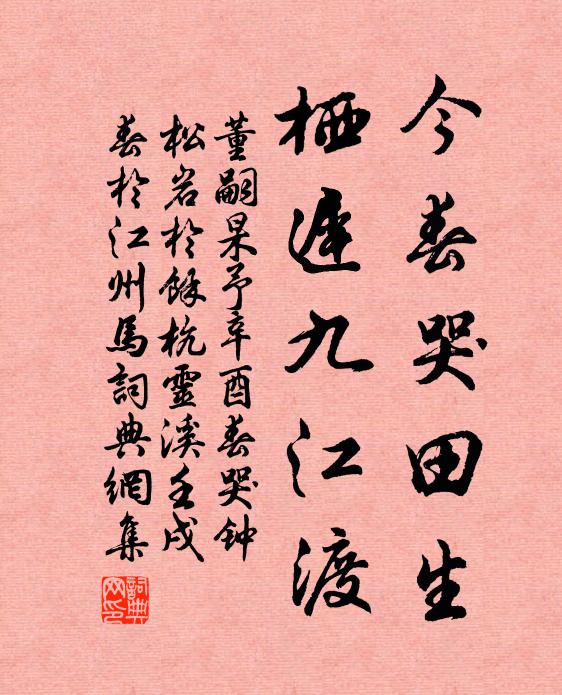 今春哭田生
栖遲九江渡
董嗣杲予辛酉春哭钟
松岩於餘杭靈溪壬戌
春於江州馬詞典網集
詞典
网印